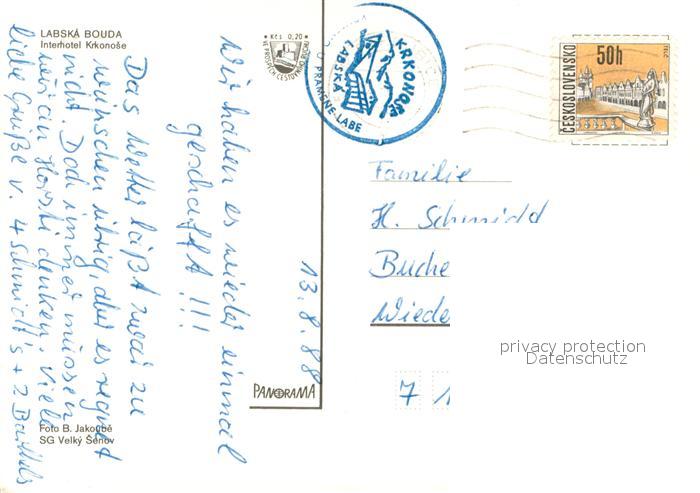 LABSKÁ BOUDA
Interhotel Krkonoše
Kčs 0,20
VE PROSPĚCH CESTOVNÍHO RUCHU
KRKONOŠE
LABSKÁ
U PRAMENE LABE
ČESKOSLOVENSKO
50h
TELČ
13.8.88
Wir haben es wieder einmal
geschafft !!!
Das Wetter läßt zwar zu
wünschen übrig, aber es regnet
nicht. Doch immer müssen
wir an Horst denken. Viele
liebe Grüße v. 4 Schmidt's + 2
Familie
H. Schmidd
Buche
Wiede
7 1
PANORAMA
Foto B. Jakoubě
SG Velký Šenov
privacy protection
Datenschutz